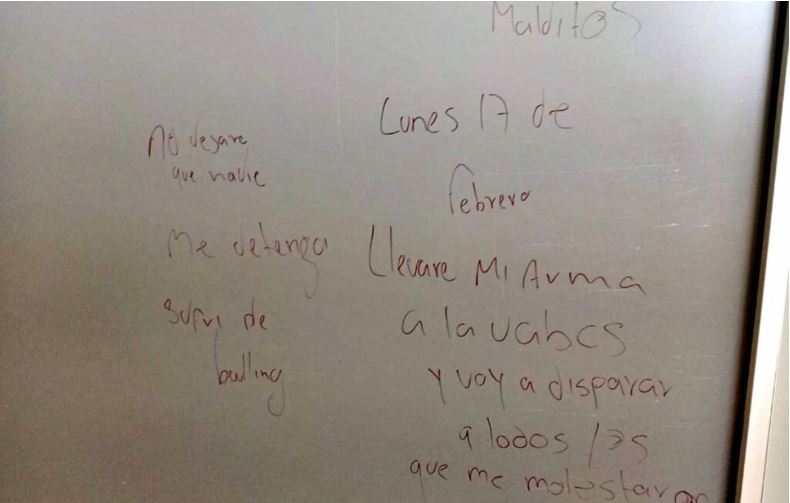 Malditos
Lunes 17 de
febrero
Llevare Mi Arma
a la uabcs
y voy a disparar
a todos los
que me molestaron
No dejare
que nadie
Me detenga
Sufri de
bulling